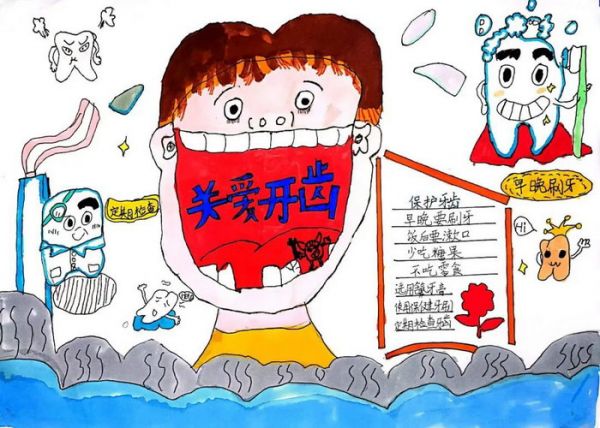 关爱牙齿
定期检查
早晚刷牙
Hi
保护牙齿
早晚要刷牙
饭后要漱口
少吃糖果
不吃零食
选用氟牙膏
使用保健牙刷
定期检查牙齿